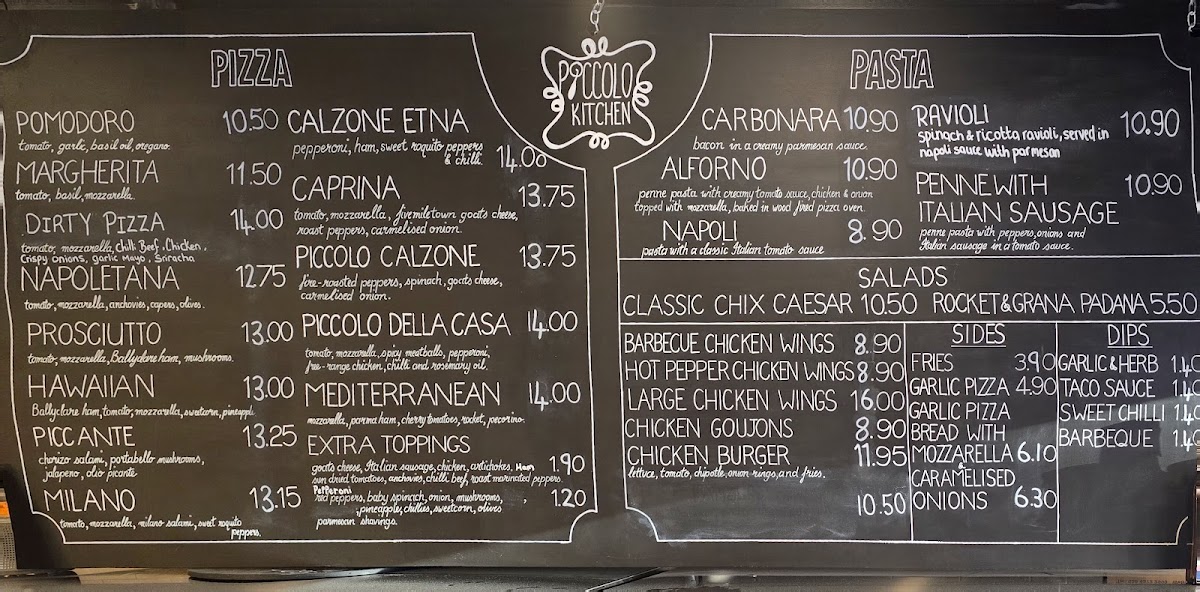 PICCOLO
KITCHEN
PIZZA
POMODORO 10.50
tomato, garlic, basil oil, oregano.
MARGHERITA 11.50
tomato, basil, mozzarella.
DIRTY PIZZA 14.00
tomato, mozzarella, Chilli Beef, Chicken,
Crispy Onions, garlic Mayo, Sriracha
NAPOLETANA 12.75
tomato, mozzarella, anchovies, capers, olives.
PROSCIUTTO 13.00
tomato, mozzarella, Ballyclare ham, mushrooms.
HAWAIIAN 13.00
Ballyclare ham, tomato, mozzarella, sweetcorn, pineapple
PICCANTE 13.25
chorizo salami, portabello mushrooms,
jalapeno, olio picante.
MILANO 13.15
tomato, mozzarella, milano salami, sweet roquito
peppers.
CALZONE ETNA
pepperoni, ham, sweet roquito peppers
& chilli. 14.00
CAPRINA 13.75
tomato, mozzarella, fivemiletown goats cheese,
roast peppers, carmelised onion.
PICCOLO CALZONE 13.75
fire-roasted peppers, spinach, goats cheese,
carmelised onion.
PICCOLO DELLA CASA 14.00
tomato, mozzarella, spicy meatballs, pepperoni,
free-range chicken, chilli and rosemary oil.
MEDITERRANEAN 14.00
mozzarella, parma ham, cherry tomatoes, rocket, pecorino.
EXTRA TOPPINGS
goats cheese, Italian sausage, chicken, artichokes, Ham 1.90
sun dried tomatoes, anchovies, chilli beef, roast marinated peppers.
Pepperoni
red peppers, baby spinach, onion, mushrooms, 1.20
pineapple, chillies, sweetcorn, olives
parmesan shavings.
PASTA
CARBONARA 10.90
bacon in a creamy parmesan sauce.
ALFORNO 10.90
penne pasta with creamy tomato sauce, chicken & onion
topped with mozzarella, baked in wood fired pizza oven.
NAPOLI 8.90
pasta with a classic Italian tomato sauce
RAVIOLI 10.90
spinach & ricotta ravioli, served in
napoli sauce with parmesan
PENNE WITH 10.90
ITALIAN SAUSAGE
penne pasta with peppers, onions and
Italian sausage in a tomato sauce.
SALADS
CLASSIC CHIX CAESAR 10.50 ROCKET & GRANA PADANA 5.50
BARBECUE CHICKEN WINGS 8.90
HOT PEPPER CHICKEN WINGS 8.90
LARGE CHICKEN WINGS 16.00
CHICKEN GOUJONS 8.90
CHICKEN BURGER 11.95
lettuce, tomato, chipotle, onion-rings, and fries.
10.50
SIDES
FRIES 3.90
GARLIC PIZZA 4.90
GARLIC PIZZA
BREAD WITH
MOZZARELLA 6.10
&
CARAMELISED
ONIONS 6.30
DIPS
GARLIC & HERB 1.40
TACO SAUCE 1.40
SWEET CHILLI 1.40
BARBEQUE 1.40